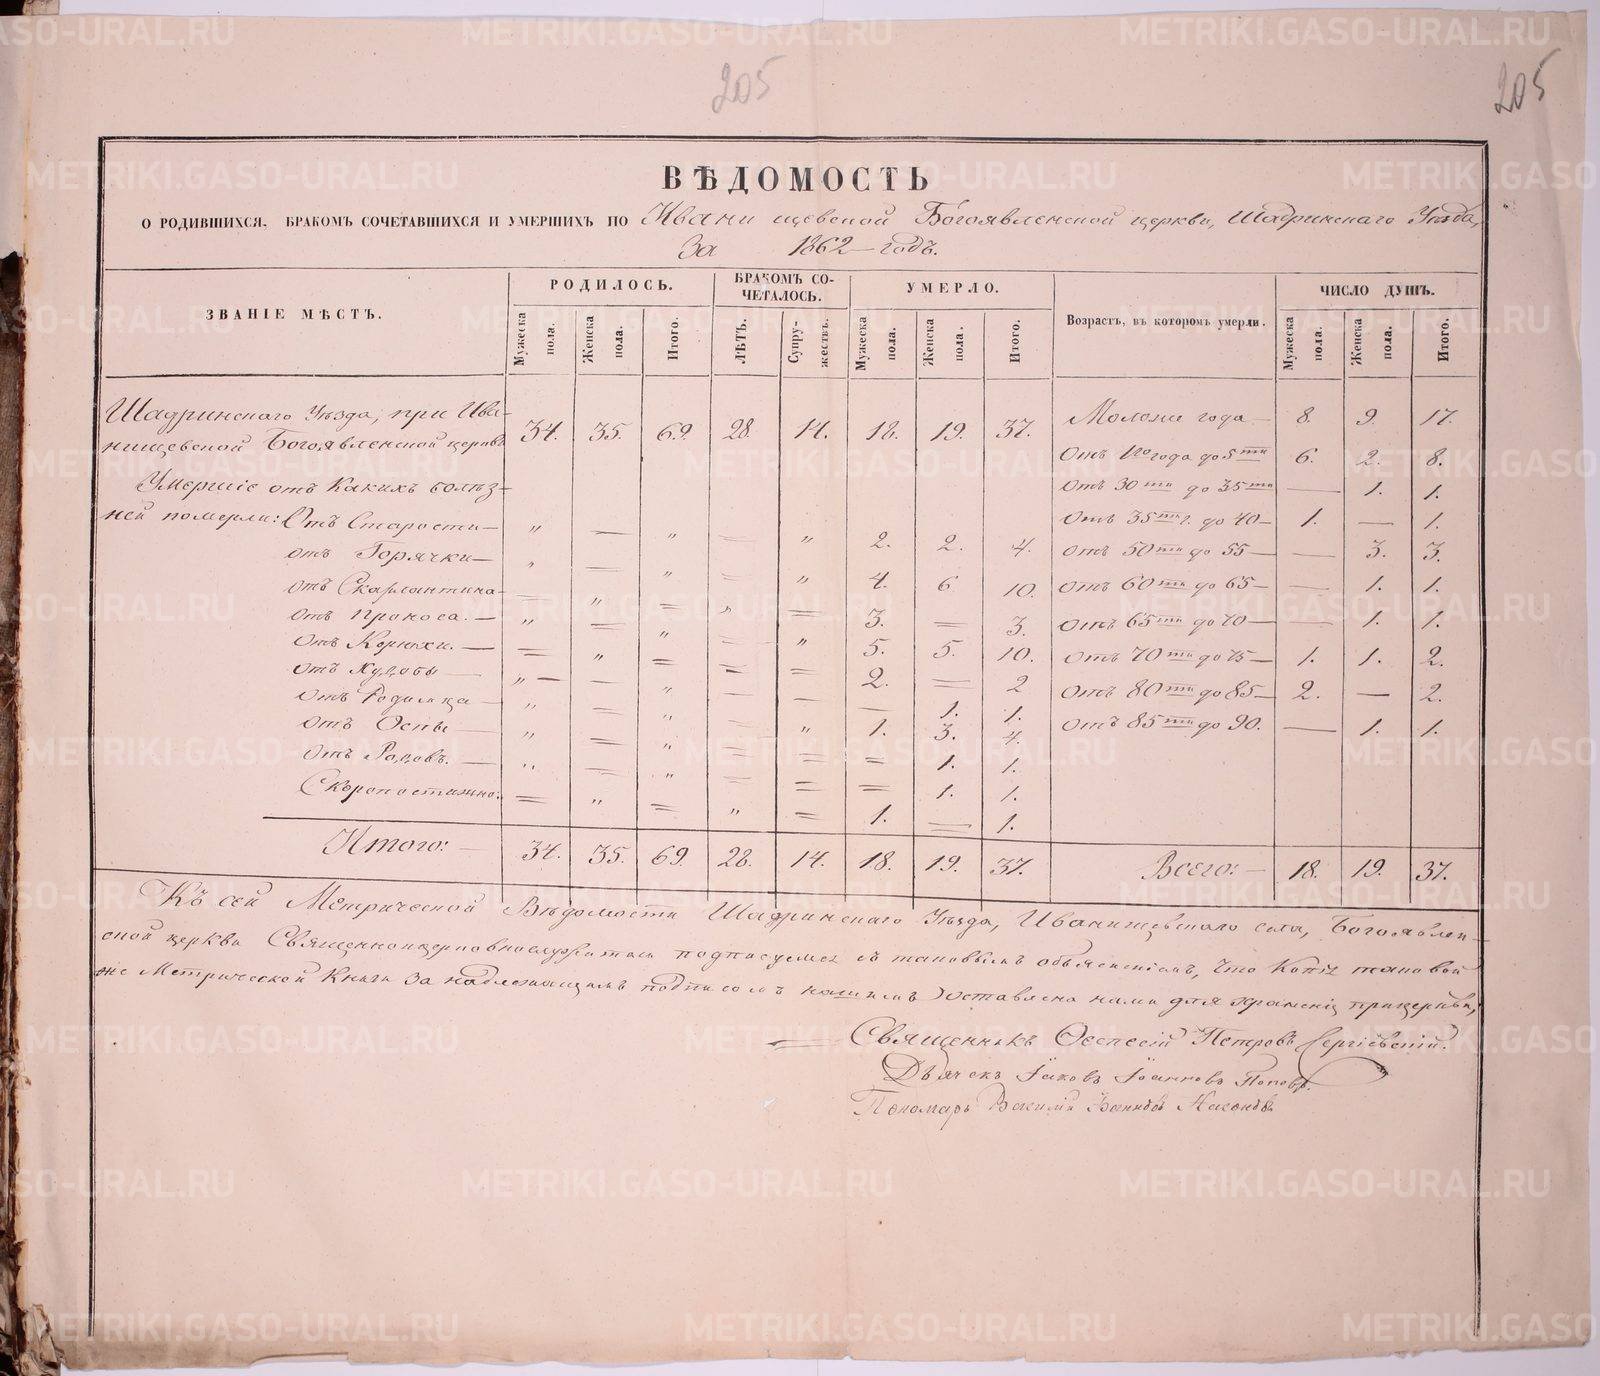 205 205
ВѢДОМОСТЬ
О РОДИВШИХСЯ, БРАКОМЪ СОЧЕТАВШИХСЯ И УМЕРШИХЪ ПО Ивани щевской Богоявленской церкви, Шадринскаго Уѣзда,
За 1862 – годъ.
ЗВАНІЕ МѢСТЪ. РОДИЛОСЬ. БРАКОМЪ СО-ЧЕТАЛОСЬ. УМЕРЛО. Возрастъ, въ которомъ умерли. ЧИСЛО ДУШЪ.
Мужеска пола. Женска пола. Итого. ЛѢТЪ. Супру-жествъ. Мужеска пола. Женска пола. Итого. Мужеска пола. Женска пола. Итого.
Шадринскаго Уѣзда, при Ива- Моложе года – 8. 9. 17.
нищевской Богоявленской церкви 34. 35. 69. 28. 14. 18. 19. 37.
Отъ 1го года до 5ти 6. 2. 8.
Умершіе отъ Какихъ болѣз- Отъ 30ти до 35ти — 1. 1.
ней померли: Отъ Старости – " — " — " 2. 2. 4. Отъ 35ти г. до 40 – 1. — 1.
отъ Горячки – " — " — " 4. 6 10. Отъ 50ти до 55 — — 3. 3.
отъ Скарлантина – = " = " = 3. = 3. Отъ 60ти до 65 – — 1. 1.
отъ Проноса. – " = " — " 5. 5. 10. Отъ 65ти до 70 — — 1. 1.
отъ Корюхи. — = " = = = 2. = 2 Отъ 70ти до 75 – 1. 1. 2.
отъ Худобы — " – — " — — — 1. 1. Отъ 80ти до 85 – 2. — 2.
отъ Родимца – " = " — " 1. 3. 4. Отъ 85ти до 90. — 1. 1.
отъ Оспы — " = " = = = 1. 1.
Отъ Родовъ. — " = " = = = 1. 1.
Скоропостижно. = " = " = 1. — 1.
Итого: – 34. 35. 69. 28. 14. 18. 19. 37. Всего: – 18. 19. 37.
Къ сей Метрической Вѣдомости Шадринскаго Уѣзда, Иванищевскаго села, Богоявлен-
ской церкви Священноцерковнослужители подписуемся съ таковымъ объясненіемъ, Что Копія таковой
же Метрической Книги За надлежащимъ подписомъ нашимъ оставлена нами для храненія прицеркви;
Священникъ Петровъ Сергіевскій.
Дьячекъ Іаковъ Іоанновъ Поповъ.
Пономарь
METRIKI.GASO-URAL.RU